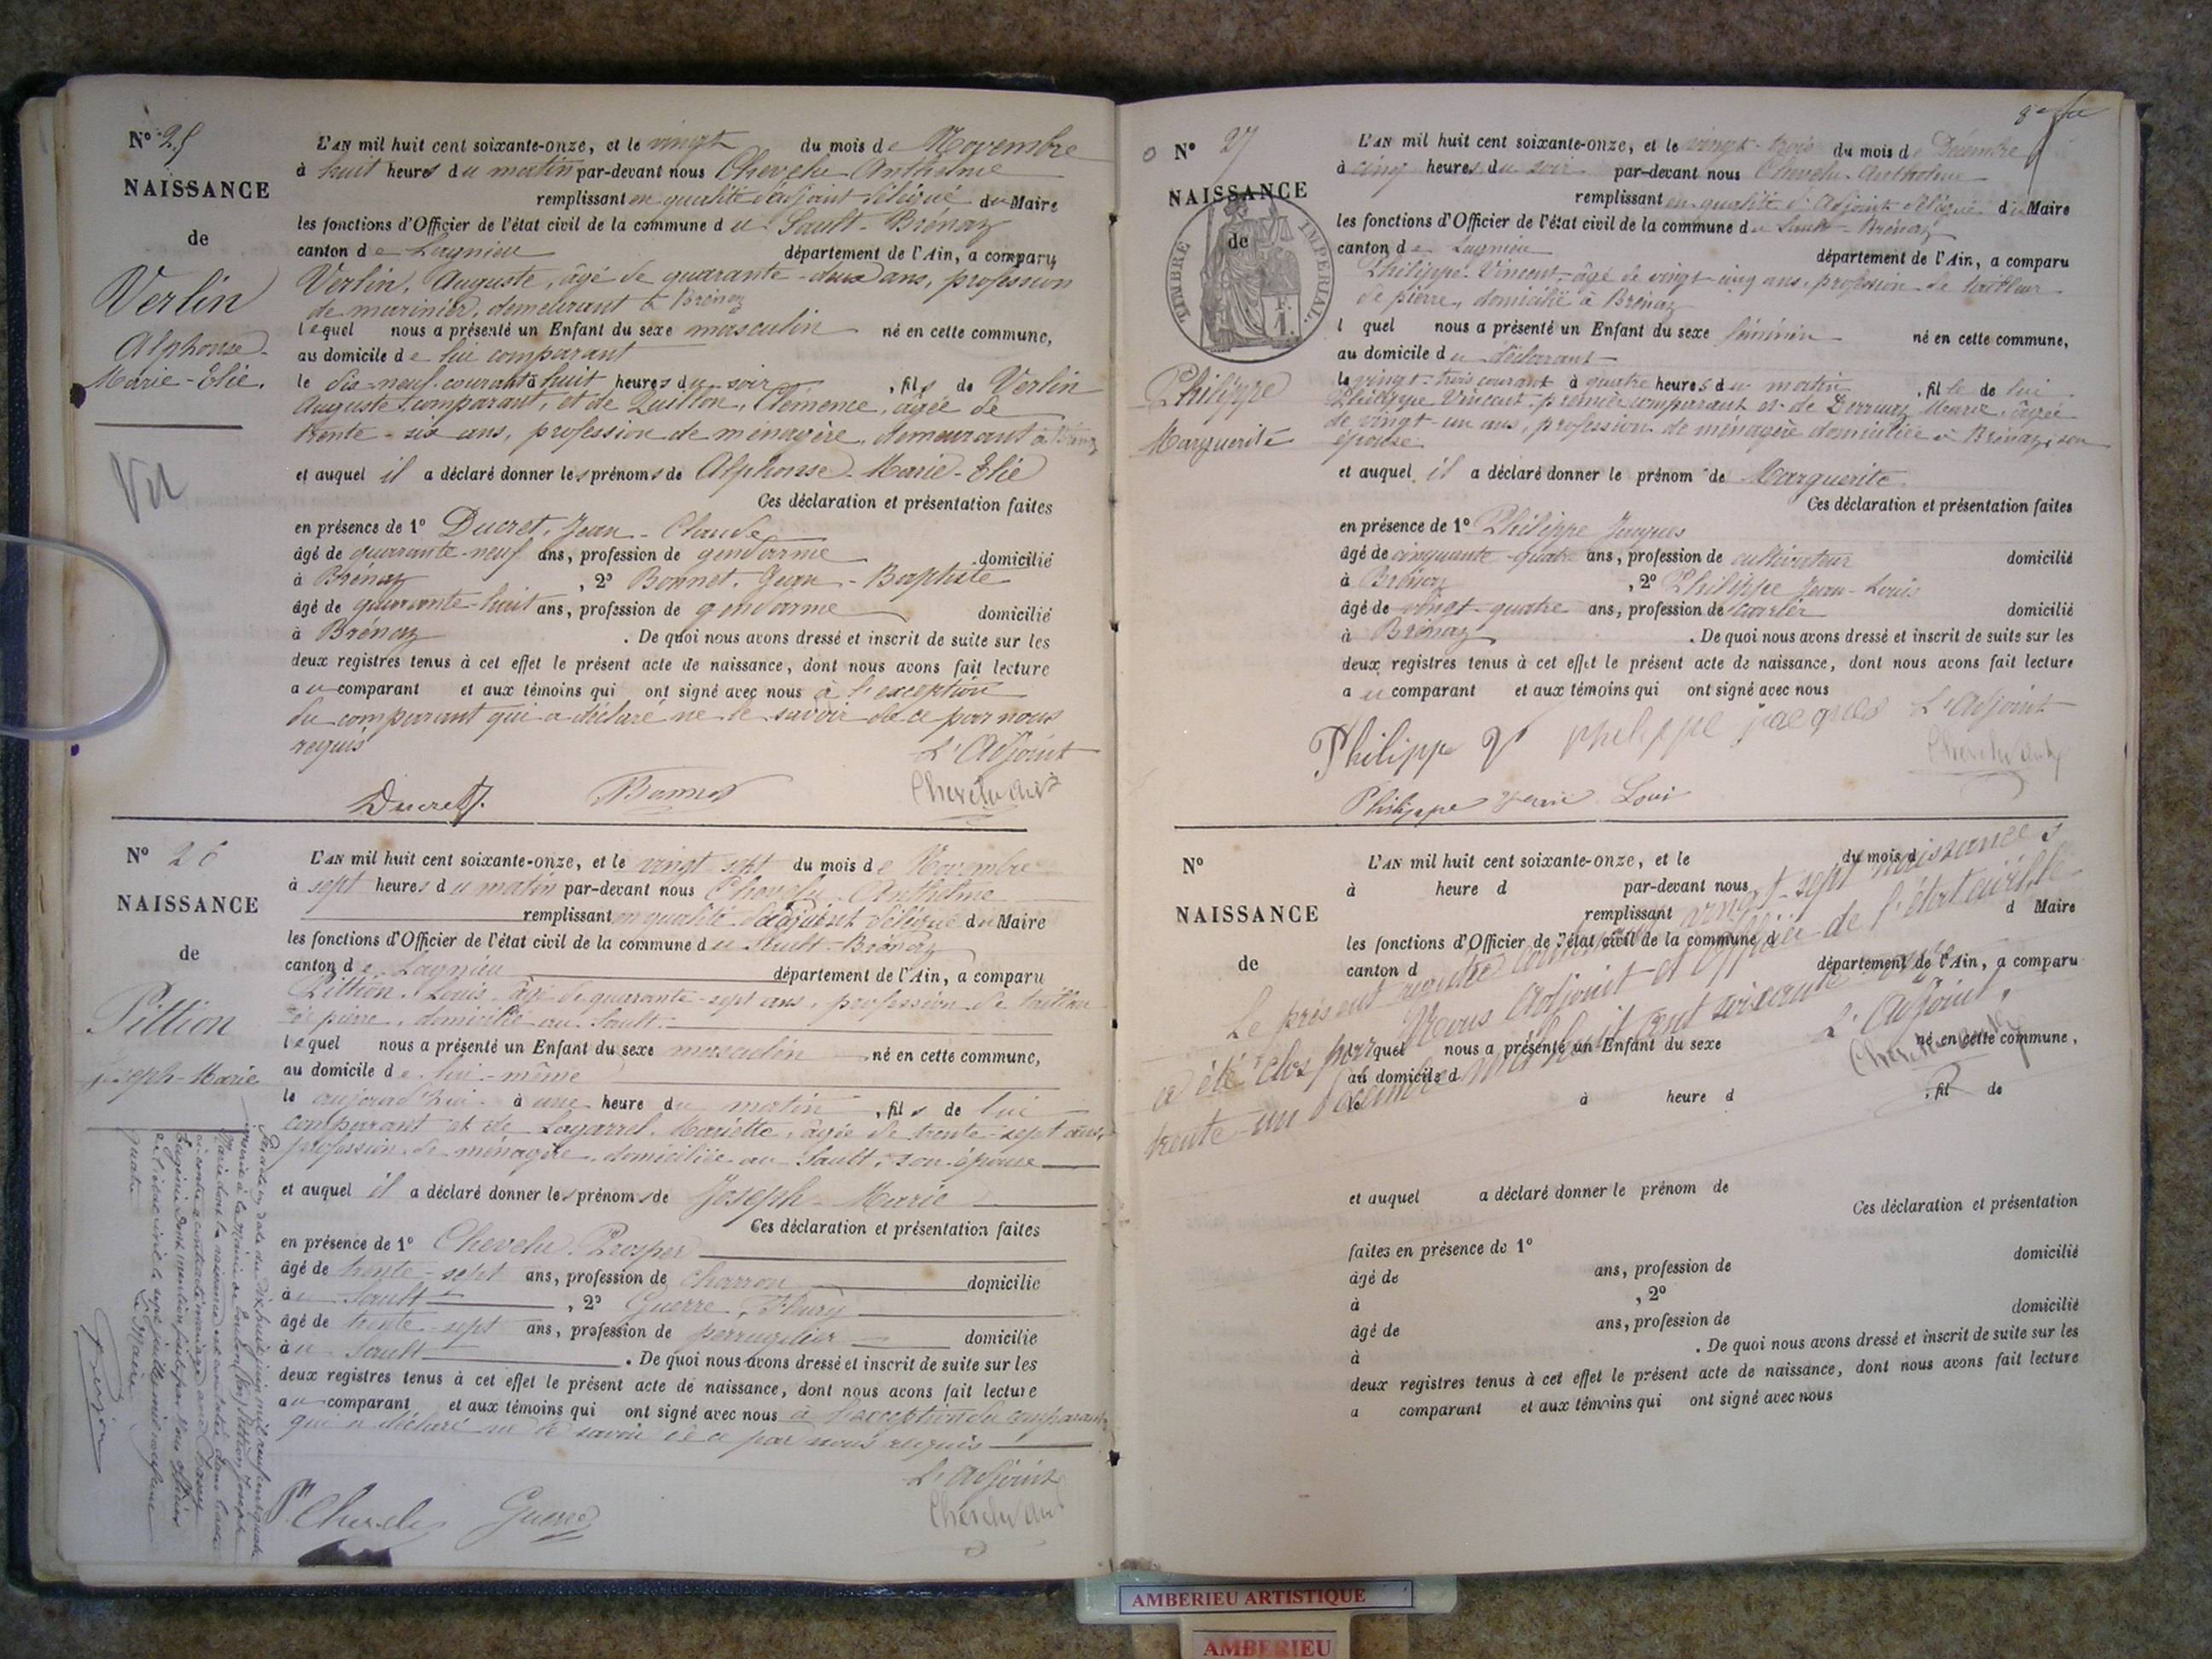 N° 25
NAISSANCE
de
Verlin
Alphonse-
Marie-Elie.
Vu
L'AN mil huit cent soixante-onze, et le vingt du mois de Novembre
à huit heures du matin par-devant nous Chevelu Anthelme
remplissant en qualité d'adjoint délégué du Maire
les fonctions d'Officier de l'état civil de la commune du Sault-Brénaz
canton de Lagnieu département de l'Ain, a comparu
Verlin, Auguste, âgé de quarante-deux ans, profession
de marinier, demeurant à Brénaz
lequel nous a présenté un Enfant du sexe masculin né en cette commune,
au domicile de lui comparant
le dix-neuf courant à huit heures du soir, fils de Verlin
Auguste comparant, et de Quillon, Clémence, âgée de
trente-six ans, profession de ménagère, demeurant à Brénaz
et auquel il a déclaré donner les prénoms de Alphonse-Marie-Elie
Ces déclaration et présentation faites
en présence de 1° Ducret, Jean-Claude
âgé de quarante-neuf ans, profession de gendarme domicilié
à Brénaz, 2° Bonnet, Jean-Baptiste
âgé de quarante-huit ans, profession de gendarme domicilié
à Brénaz. De quoi nous avons dressé et inscrit de suite sur les
deux registres tenus à cet effet le présent acte de naissance, dont nous avons fait lecture
au comparant et aux témoins qui ont signé avec nous à l'exception
du comparant qui a déclaré ne le savoir de ce par nous
requis
L'Adjoint
Ducret Bonnet Chevelu Ant
N° 26
NAISSANCE
de
Pittion
Joseph-Marie
L'AN mil huit cent soixante-onze, et le vingt sept du mois de Novembre
à sept heures du matin par-devant nous Chevelu Anthelme
remplissant en qualité d'adjoint délégué du Maire
les fonctions d'Officier de l'état civil de la commune du Sault-Brénaz
canton de Lagnieu département de l'Ain, a comparu
Pittion, Louis, âgé de quarante-sept ans, profession de tailleur
de pierre, domicilié au Sault.
lequel nous a présenté un Enfant du sexe masculin né en cette commune,
au domicile de lui-même
le aujourd'hui à une heure du matin, fils de lui
comparant et de Lagarrel, Mariette, âgée de trente-sept ans,
profession de ménagère, domiciliée au Sault, son épouse
et auquel il a déclaré donner les prénoms de Joseph-Marie
Ces déclaration et présentation faites
en présence de 1° Chevelu Prosper
âgé de trente-sept ans, profession de charron domicilié
au Sault, 2° Guerre, Fleury
âgé de trente-sept ans, profession de perruquier domicilié
au Sault. De quoi nous avons dressé et inscrit de suite sur les
deux registres tenus à cet effet le présent acte de naissance, dont nous avons fait lecture
au comparant et aux témoins qui ont signé avec nous à l'exception du comparant
qui a déclaré ne le savoir de ce par nous requis
L'Adjoint
Pr Chevelu Guerre Chevelu Ant
date du dix huit juin mil neuf cent quatre
à la Mairie de Pittion Joseph
Marie dont la naissance est constatée dans l'acte
ci contre a contracté mariage avec
Eugénie Dont mention faite par Nous officier
de l'état civil le sept juillet mil neuf cent
quatre Le Maire
N° 27
NAISSANCE
de
TIMBRE IMPERIAL.
1 F.
Philippe
Marguerite
L'AN mil huit cent soixante-onze, et le vingt-trois du mois de Décembre
à cinq heures du soir par-devant nous Chevelu Anthelme
remplissant en qualité d'Adjoint délégué du Maire
les fonctions d'Officier de l'état civil de la commune du Sault-Brénaz
canton de Lagnieu département de l'Ain, a comparu
Philippe Vincent, âgé de vingt-cinq ans, profession de tailleur
de pierre, domicilié à Brénaz
lequel nous a présenté un Enfant du sexe féminin né en cette commune,
au domicile du déclarant
le vingt-trois courant à quatre heures du matin, fille de lui
Philippe Vincent premier comparant et de Derruaz Marie, âgée
de vingt-un ans, profession de ménagère domiciliée à Brénaz, son
épouse
et auquel il a déclaré donner le prénom de Marguerite.
Ces déclaration et présentation faites
en présence de 1° Philippe Jacques
âgé de cinquante-quatre ans, profession de cultivateur domicilié
à Brénaz, 2° Philippe Jean-Louis
âgé de vingt-quatre ans, profession de carrier domicilié
à Brénaz. De quoi nous avons dressé et inscrit de suite sur les
deux registres tenus à cet effet le présent acte de naissance, dont nous avons fait lecture
au comparant et aux témoins qui ont signé avec nous
L'Adjoint
Philippe V phelippe jacques Chevelu Ant
Philippe Jean Loui
N°
NAISSANCE
de
L'AN mil huit cent soixante-onze, et le du mois d
à heure d par-devant nous
remplissant d Maire
les fonctions d'Officier de l'état civil de la commune d
canton d département de l'Ain, a comparu
l quel nous a présenté un Enfant du sexe né en cette commune,
au domicile d
le à heure d, fil de
Le présent registre contenant vingt-sept naissances
a été clos par Nous Adjoint et officier de l'état civil le
trente-un Décembre mil huit cent soixante onze
L'Adjoint,
Chevelu Anth
et auquel a déclaré donner le prénom de
Ces déclaration et présentation
faites en présence de 1° domicilié
âgé de ans, profession de
à, 2° domicilié
âgé de ans, profession de
à. De quoi nous avons dressé et inscrit de suite sur les
deux registres tenus à cet effet le présent acte de naissance, dont nous avons fait lecture
a comparant et aux témoins qui ont signé avec nous
AMBERIEU ARTISTIQUE
AMBERIEU